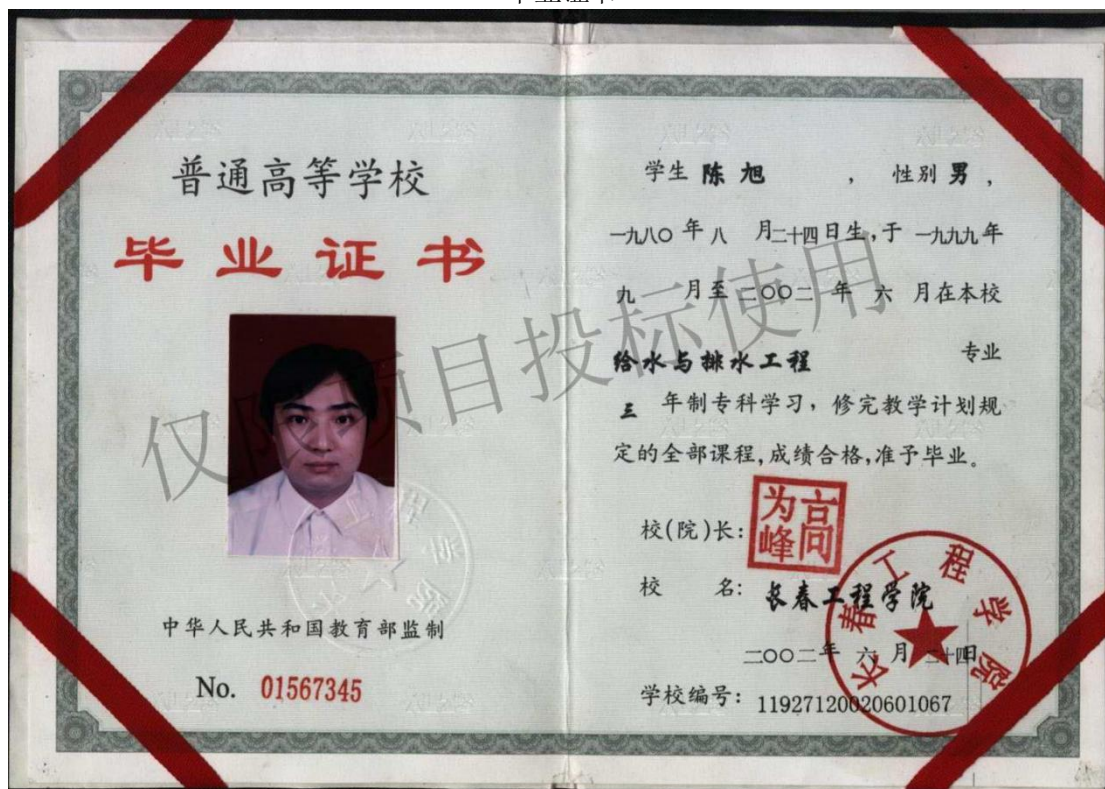 普通高等学校
毕业证书
中华人民共和国教育部监制
No. 01567345
学生 陈旭 , 性别 男 ,
一九八〇 年 八 月二十四日生,于 一九九九 年
九 月至 二〇〇二 年 六 月在本校
给水与排水工程 专业
三 年制专科学习, 修完教学计划规
定的全部课程,成绩合格,准予毕业。
校(院)长:
高为峰
校 名: 长春工程学院
二〇〇二年 六 月 二十四日
学校编号: 11927120020601067
长春工程学院
仅限项目投标使用